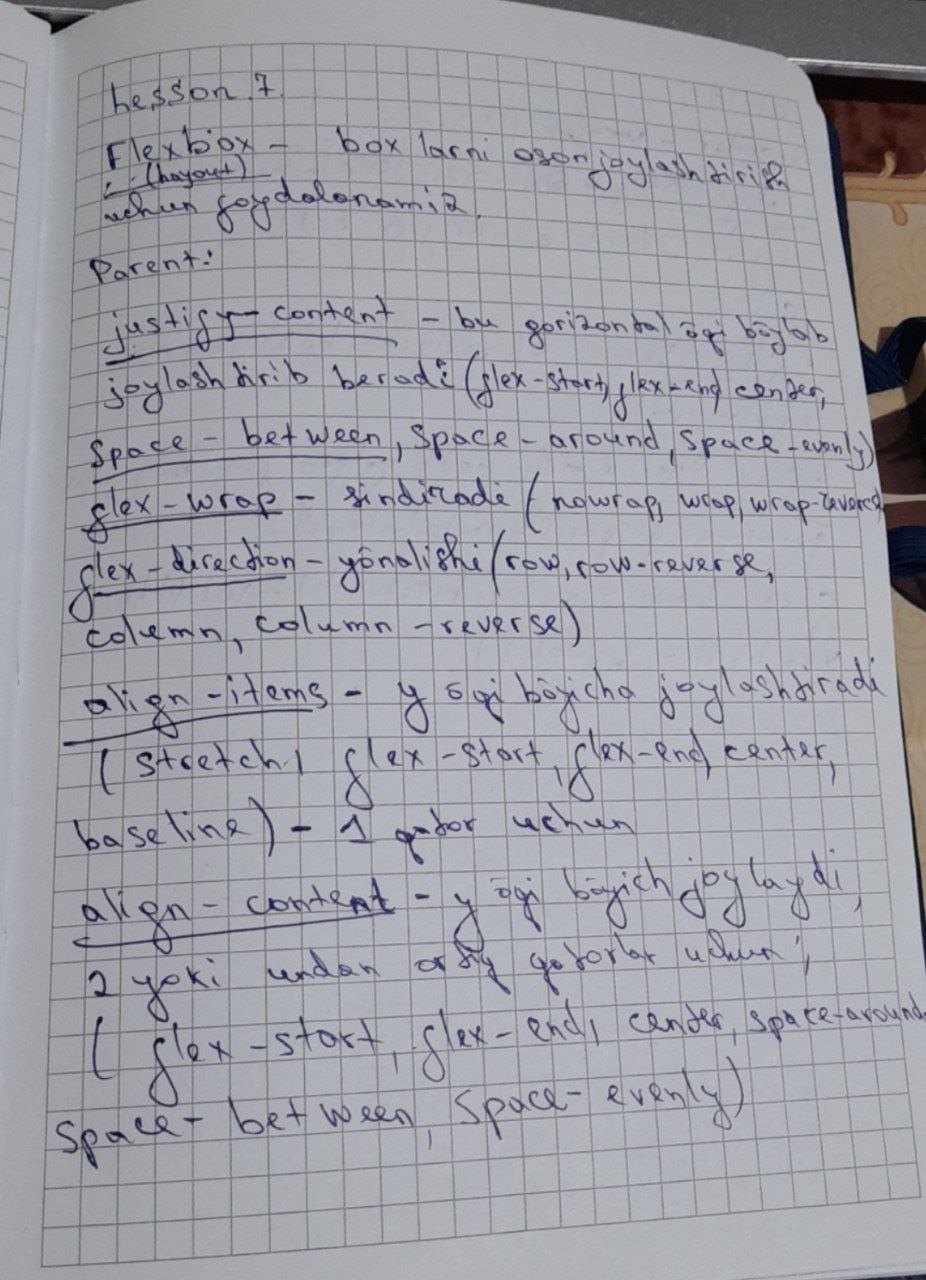 Lesson 7.
Flexbox – box larni oson joylashtirish
(Layout)
uchun foydalanamiz.
Parent:
justify-content – bu gorizontal õqi bõylab
joylashtirib beradi (flex-start, flex-end, center,
space-between, space-around, space-evenly)
flex-wrap – sindiradi (nowrap, wrap, wrap-reverce
flex-direction – yõnalishi (row, row-reverse,
column, column-reverse)
align-items – y õqi bõyicha joylashtiradi
(stretch, flex-start, flex-end, center,
baseline) – 1 qator uchun
align-content – y õqi bõyich joylaydi,
2 yoki undan ortiq qatorlar uchun;
( flex-start, flex-end, center, space-around
space-between, space-evenly)